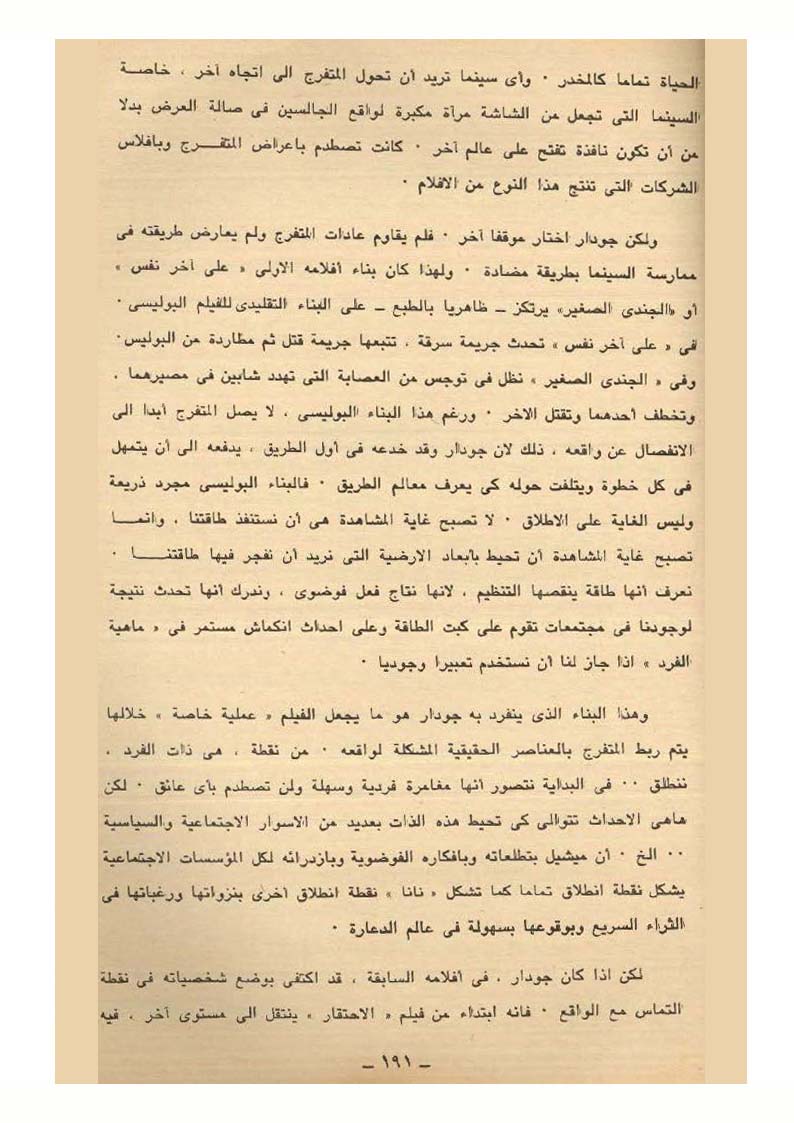 الحياة تماما كالمخدر ٠ وأى سينما تريد أن تحول المتفرج الى اتجاه آخر ، خاصـة
السينما التى تجعل من الشاشة مرآة مكبرة لواقع الجالسين فى صالة العرض بدلا
من أن تكون نافذة تفتح على عالم آخر ٠ كانت تصطدم باعراض المتفـــرج وبافلاس
الشركات التى تنتج هذا النوع من الافلام ٠
ولكن جودار اختار موقفا آخر ٠ فلم يقاوم عادات المتفرج ولم يعارض طريقته فى
ممارسة السينما بطريقة مضادة ٠ ولهذا كان بناء أفلامه الاولى « على آخر نفس »
أو «الجندى الصغير» يرتكز ـ ظاهريا بالطبع ـ على البناء التقليدى للفيلم البوليسى ٠
فى « على آخر نفس » تحدث جريمة سرقة ، تتبعها جريمة قتل ثم مطاردة من البوليس٠
وفى « الجندى الصغير » نظل فى توجس من العصابة التى تهدد شابين فى مصيرهما ،
وتخطف أحدهما وتقتل الآخر ٠ ورغم هذا البناء البوليسى ، لا يصل المتفرج أبدا الى
الانفصال عن واقعه ، ذلك لان جودار وقد خدعه فى أول الطريق ، يدفعه الى أن يتمهل
فى كل خطوة ويتلفت حوله كى يعرف معالم الطريق ٠ فالبناء البوليسى مجرد ذريعة
وليس الغاية على الاطلاق ٠ لا تصبح غاية المشاهدة هى أن نستنفذ طاقتنا ، وانمـــا
تصبح غاية المشاهدة أن تحيط بأبعاد الارضية التى نريد أن نفجر فيها طاقتنـــا ٠
نعرف أنها طاقة ينقصها التنظيم ، لانها نتاج فعل فوضوى ، وندرك أنها تحدث نتيجة
لوجودنا فى مجتمعات تقوم على كبت الطاقة وعلى احداث انكماش مستمر فى « ماهية
الفرد » اذا جاز لنا أن نستخدم تعبيرا وجوديا ٠
وهذا البناء الذى ينفرد به جودار هو ما يجعل الفيلم « عملية خاصة » خلالها
يتم ربط المتفرج بالعناصر الحقيقية المشكلة لواقعه ٠ من نقطة ، هى ذات الفرد ،
ننطلق ٠٠ فى البداية نتصور أنها مغامرة فردية وسهلة ولن تصطدم بأى عائق ٠ لكن
هاهى الاحداث تتوالى كى تحيط هذه الذات بعديد من الاسوار الاجتماعية والسياسية
٠٠ الخ ٠ أن ميشيل بتطلعاته وبافكاره الفوضوية وبازدرائه لكل المؤسسات الاجتماعية
يشكل نقطة انطلاق تماما كما تشكل « نانا » نقطة انطلاق أخرى بنزواتها ورغباتها فى
الثراء السريع وبوقوعها بسهولة فى عالم الدعارة ٠
لكن اذا كان جودار ، فى أفلامه السابقة ، قد اكتفى بوضع شخصياته فى نقطة
التماس مع الواقع ٠ فانه ابتداء من فيلم « الاحتقار » ينتقل الى مستوى آخر ، فيه
ـ ١٩١ ـ